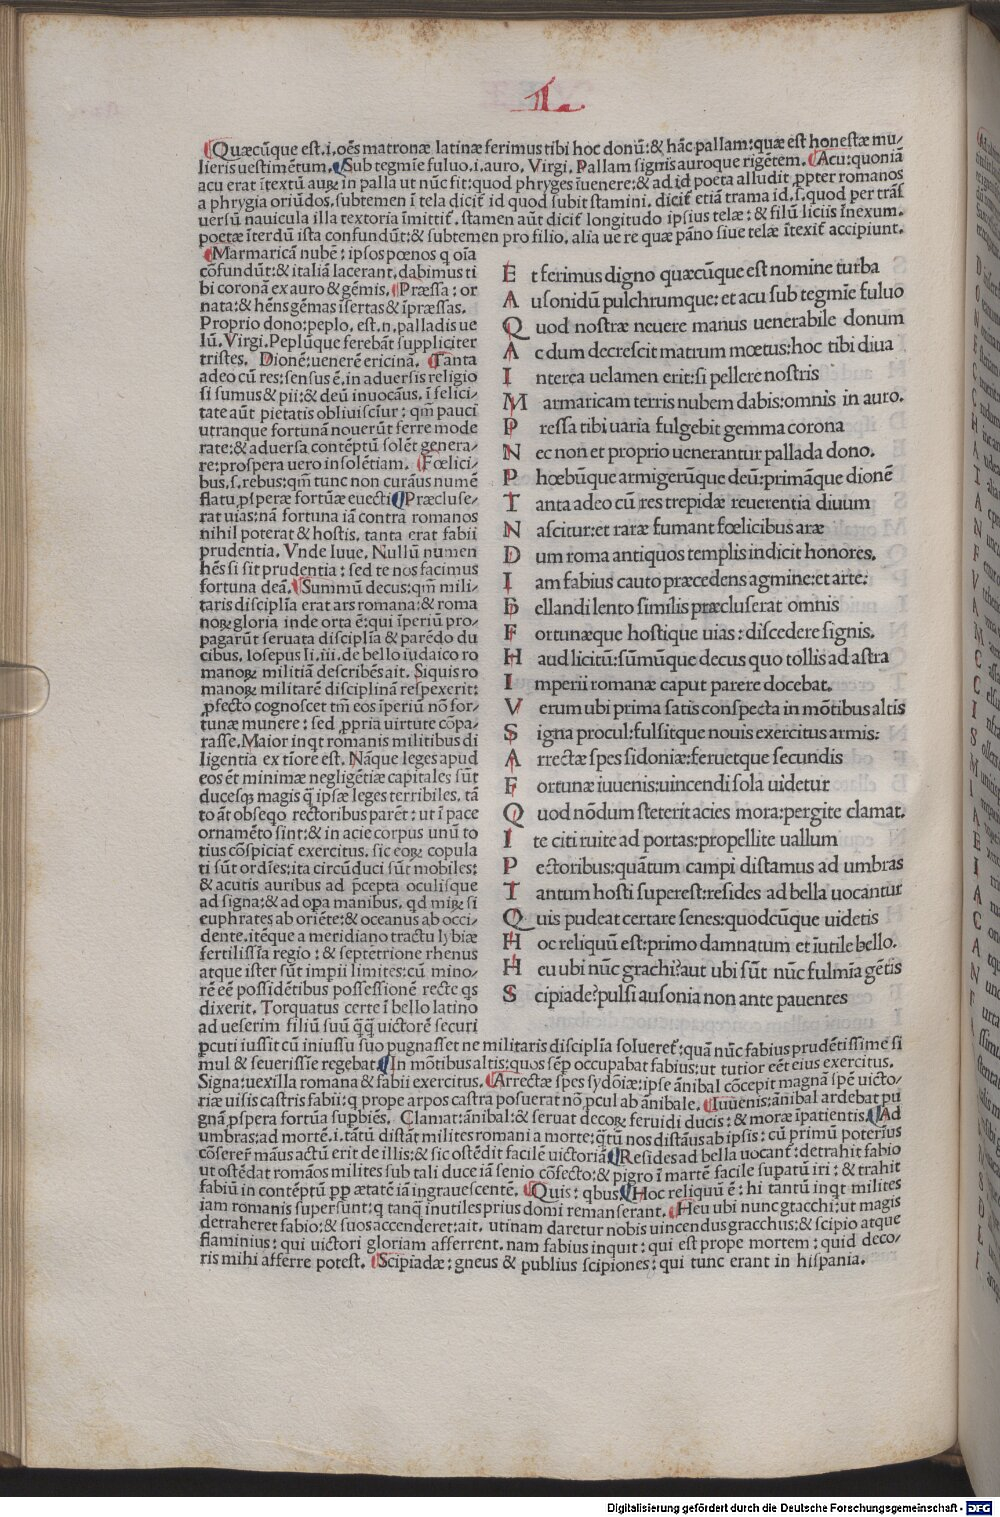 L
Quæcūque est.i.oēs matronæ latinæ ferimus tibi hoc donū: & hāc pallam: quæ est honestæ mu/
lieris uestimētum. Sub tegmīe fuluo.i.auro. Virgi. Pallam signis auroque rigētem. Acu: quoniā
acu erat ītextū auꝝ in palla ut nūc fit: quod phryges īuenere: & ad id poeta alludit ꝓpter romanos
a phrygia oriūdos. subtemen ī tela dicit̄ id quod subit stamini. dicit̄ etiā trama id.s.quod per trāſ
uersū nauicula illa textoria īmittit̄. stamen aūt dicit̄ longitudo ipsius telæ: & filū liciis īnexum.
poetæ īterdū ista confundūt: & subtemen pro filio. alia ue re quæ pāno siue telæ ītexit̄ accipiunt.
Marmaricā nubē: ipsos pœnos q oīa
cōfundūt: & italiā lacerant. dabimus ti
bi coronā ex auro & gēmis. Præssa: or
nata: & hēns gēmas īsertas & īpræssas.
Proprio dono: peplo. est.n.palladis ue
lū. Virgi. Peplūque ferebāt suppliciter
tristes. Dionē: uenerē ericinā. Tanta
adeo cū res: sensus ē. in aduersis religio
si sumus & pii: & deū inuocāus. ī felici/
tate aūt pietatis obliuiscīur: qm̄ pauci
utranque fortunā nouerūt ferre mode
rate: & aduersa contēptū solēt genera/
re: prospera uero insolētiam. Fœlici/
bus.s.rebus: qm̄ tunc non curāus numē
flatu ꝓsperæ fortūæ euecti Præcluse/
rat uias: nā fortuna iā contra romanos
nihil poterat & hostis. tanta erat fabii
prudentia. Vnde Iuue. Nullū numen
hēs si sit prudentia: sed te nos facimus
fortuna deā. Summū decus: qm̄ mili/
taris disciplīa erat ars romana: & roma
noꝝ gloria inde orta ē: qui īperiū pro/
pagarūt seruata disciplīa & parēdo du
cibus. Iosepus li.iii.de bello iudaico ro
manoꝝ militiā describēs ait. Siquis ro
manoꝝ militarē disciplinā respexerit:
ꝓfecto cognoscet tm̄ eos īperiū nō for/
tunæ munere: sed ꝓpria uirtute cōpa/
rasse. Maior inqt romanis militibus di
ligentia ex tīore est. Nāque leges apud
eos ēt minimæ negligētiæ capitales sūt
ducesqꝫ magis q̄ ipsæ leges terribiles. tā
to āt obseqo rectoribus parēt: ut ī pace
ornamēto sint: & in acie corpus unū to
tius cōspiciat̄ exercitus. sic eoꝝ copula
ti sūt ordīes: ita circūduci sūt mobiles:
& acutis auribus ad p̄cepta oculisque
ad signa: & ad opa manibus. qd miꝝ si
euphrates ab oriēte: & oceanus ab occi/
dente. itēque a meridiano tractu lybiæ
fertilissīa regio: & septētrione rhenus
atque ister sūt impii limites: cū mino/
rē eē possidētibus possessionē recte qs
dixerit. Torquatus certe ī bello latino
ad ueserim filiū suū q̄q̄ uictorē securi
ꝑcuti iussit cū iniussu suo pugnasset ne militaris disciplīa solueret̄: quā nūc fabius prudētissime si
mul & seuerissīe regebat In mōtibus altis: quos sēp occupabat fabius: ut tutior eēt eius exercitus.
Signa: uexilla romana & fabii exercitus. Arrectæ spes sydōiæ: ipse ānibal cōcepit magnā spē uicto/
riæ uisis castris fabii: q prope arpos castra posuerat nō ꝓcul ab ānibale. Iuuenis: ānibal ardebat pu
gnā ꝓspera fortūa supbiēs. Clamat: ānibal: & seruat decoꝝ feruidi ducis: & moræ īpatientis. Ad
umbras: ad mortē.i.tātū distāt milites romani a morte: q̄tū nos distāus ab ipsis: cū primū poterīus
cōserer̄ māus actū erit de illis: & sic ostēdit facilē uictoriā Resides ad bella uocant̄: detrahit fabio
ut ostēdat romāos milites sub tali duce iā senio cōfecto: & pigro ī martē facile supatū iri: & trahit
fabiū in contēptū ꝓp ætatē iā ingrauescentē. Quis: qbus Hoc reliquū ē: hi tantū inqt milites
iam romanis supersunt: q tanq̄ inutiles prius domi remanserant. Heu ubi nunc gtacchi: ut magis
detraheret fabio: & suos accenderet: ait. utinam daretur nobis uincendus gracchus: & scipio atque
flaminius: qui uictori gloriam afferrent. nam fabius inquit: qui est prope mortem: quid deco/
ris mihi afferre potest. Scipiadæ: gneus & publius scipiones: qui tunc erant in hispania.
E t ferimus digno quæcūque est nomine turba
A usonidū pulchrumque: et acu sub tegmīe fuluo
Q uod nostræ neuere manus uenerabile donum
A c dum decrescit matrum mœtus: hoc tibi diua
I nterea uelamen erit: si pellere nostris
M armaricam terris nubem dabis: omnis in auro.
P ressa tibi uaria fulgebit gemma corona
N ec non et proprio uenerantur pallada dono.
P hœbūque armigerūque deū: primāque dionē
T anta adeo cū res trepidæ reuerentia diuum
N ascitur: et raræ fumant fœlicibus aræ
D um roma antiquos templis indicit honores.
I am fabius cauto præcedens agmine: et arte:
B ellandi lento similis præcluserat omnis
F ortunæque hostique uias: discedere signis.
H aud licitū: sūmūque decus quo tollis ad astra
I mperii romanæ caput parere docebat.
V erum ubi prima satis conspecta in mōtibus altis
S igna procul: fulsitque nouis exercitus armis:
A rrectæ spes sidoniæ: feruetque secundis
F ortunæ iuuenis: uincendi sola uidetur
Q uod nōdum steterit acies mora: pergite clamat.
I te citi ruite ad portas: propellite uallum
P ectoribus: quātum campi distamus ad umbras
T antum hosti superest: resides ad bella uocantur
Q uis pudeat certare senes: quodcūque uidetis
H oc reliquū est: primo damnatum et iūtile bello.
H eu ubi nūc grachi? aut ubi sūt nūc fulmīa gētis
S cipiade? pulsi ausonia non ante pauentes
Digitalisierung gefördert durch die Deutsche Forschungsgemeinschaft - DFG